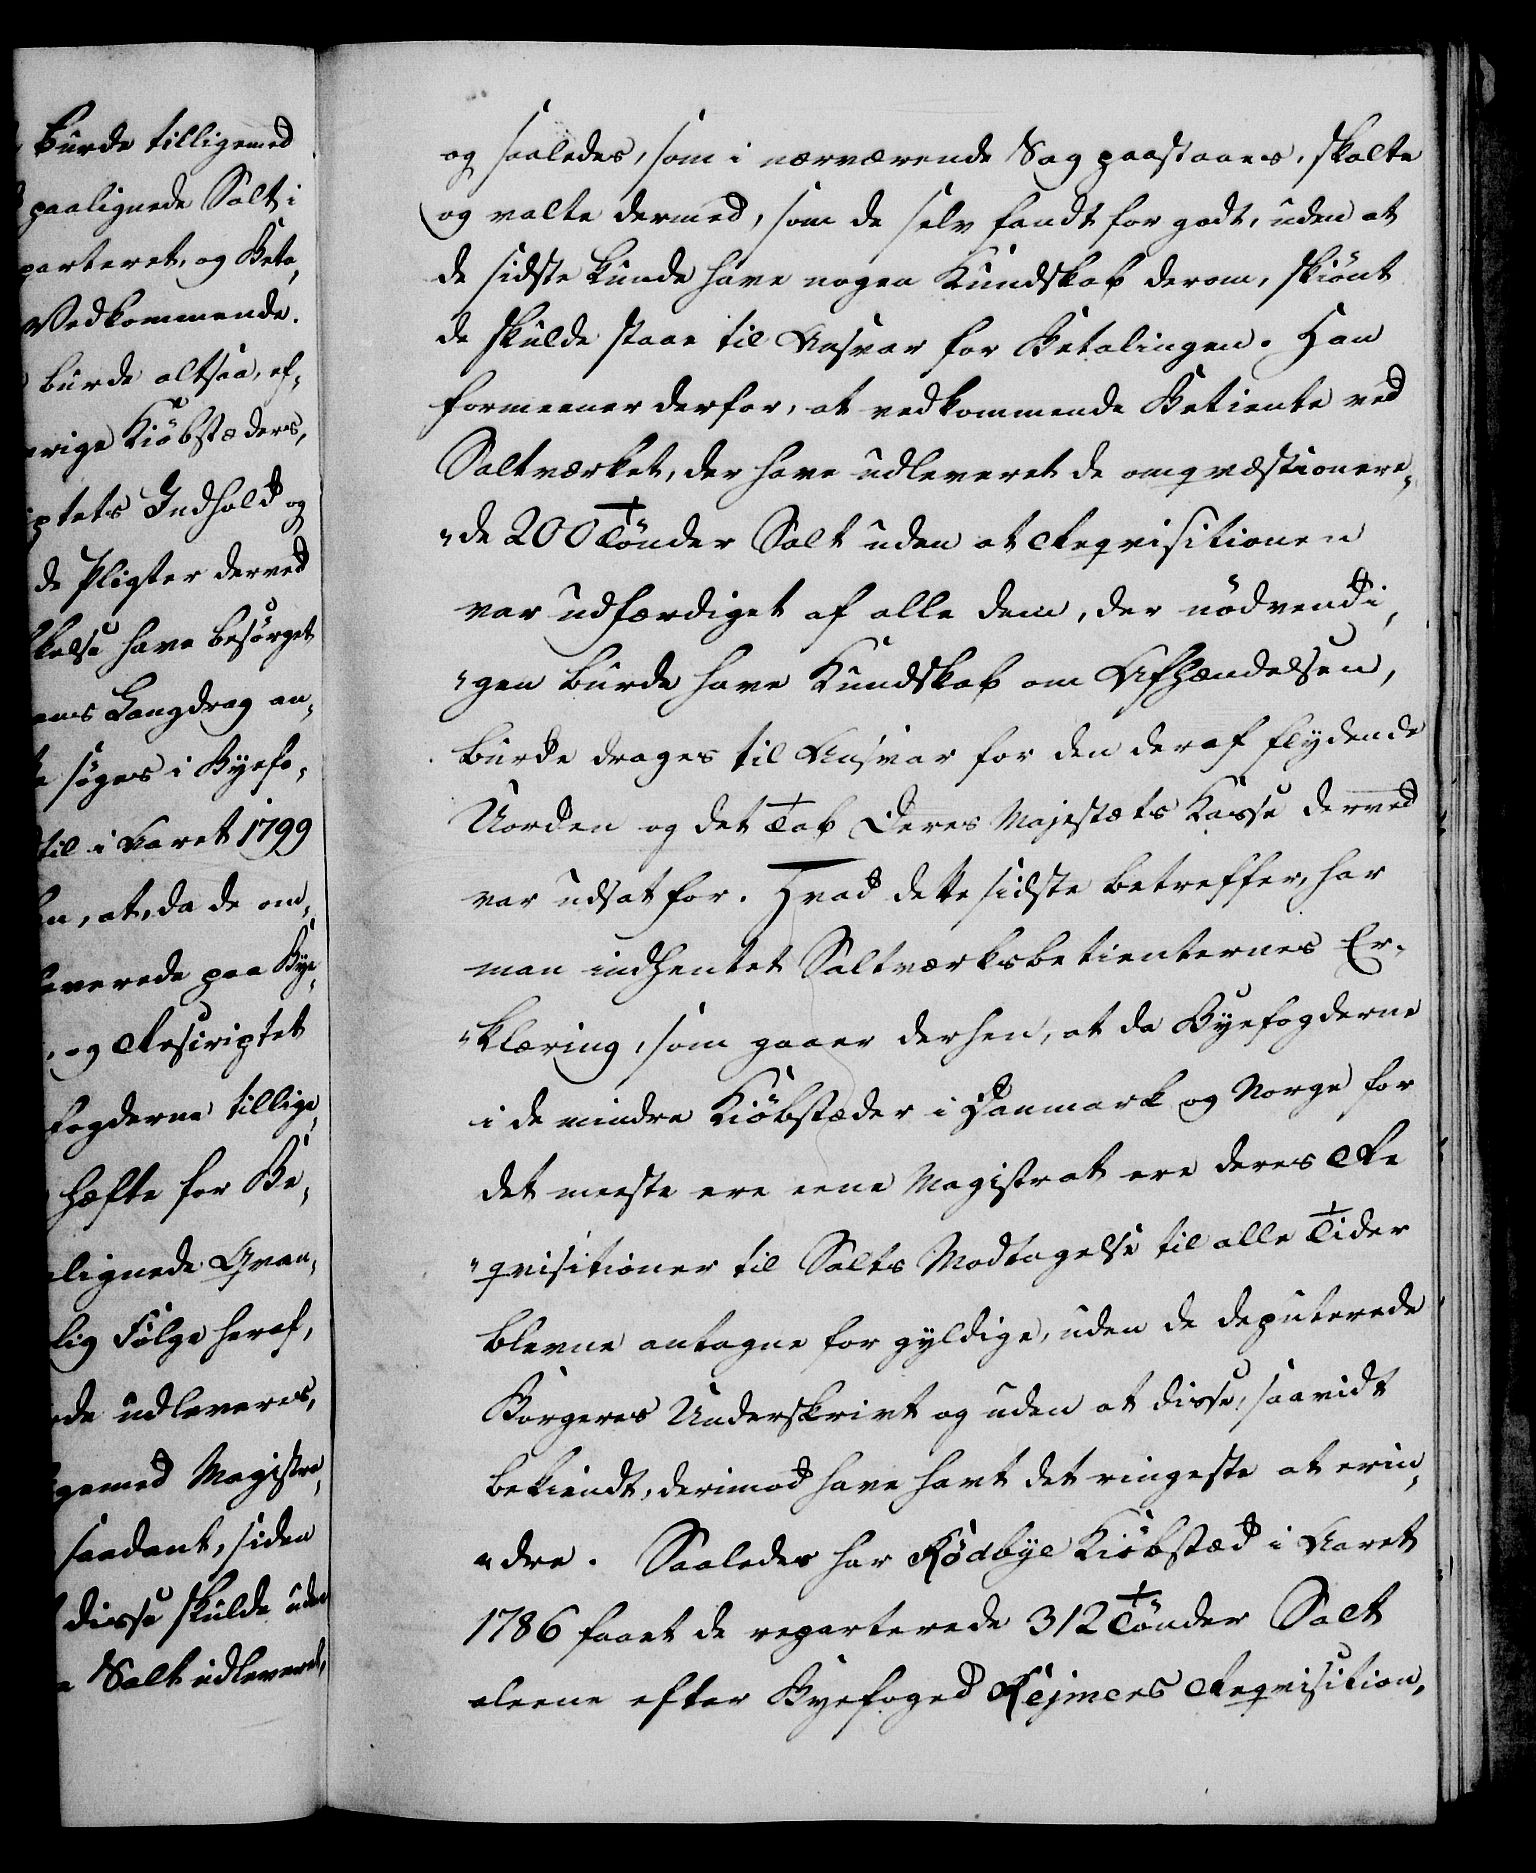 Burde tilligemed
paalignede Salt i
parteret, og Beta¸
Vedkommende.
burde altsaa, ef¸
rige Kiöbstæders,
ptets Indhold og
de Pligter derved
kelse have besörget
Langdrag an¸
söges i Byefo¸
til i Aaret 1799
at, da de om¸
leverede paa Bye¸
og Rescriptet
fogderne tillige¸
hæfte for Be¸
lignede Qvan¸
lig Fölge heraf,
de udleveres,
gemed Magistra¸
saadant, siden
disse skulde uden
Salt udleveret,
og saaledes, som i nærværende Sag paastaaes, skalte
og valte dermed, som de selv fandt for godt, uden at
de sidste kunde have nogen Kundskab derom, skiönt
de skulde staae til Ansvar for Betalingen. Han
formeener derfor, at vedkommende Betiente ved
Saltværket, der have udleveret de omqvæstionere¸
"de 200 Tönder Salt uden at Reqvisitionen
var udfærdiget af alle dem, der nödvendi¸
"gen burde have Kundskab om Afhændelsen,
burde drages til Ansvar for den deraf flydende
Uorden og det Tab Deres Majestæts Kasse derved
var udsat for. Hvad dette sidste betreffer, har
man indhentet Saltværksbetienternes Er¸
"klæring, som gaaer derhen, at da Byefogderne
i de mindre Kiöbstæder i Danmark og Norge for
det meeste ere eene Magistrat ere deres Re
"qvisitioner til Salts Modtagelse til alle Tider
blevne antagne for gyldige, uden de deputerede
Borgeres Underskrivt og uden at disse, saavidt
bekiendt, derimod have havt det ringeste at erin¸
"dre. Saaledes har Rödbye Kiöbstæd i Aaret
1786 faaet de reparterede 312 Tönder Salt
aleene efter Byefoged Rejmers Reqvisition,